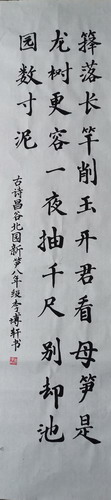 箨落长竿削玉开君看母笋是
龙树更容一夜抽千尺别却池
园数寸泥
古诗昌谷北园新笋八年级李博轩书